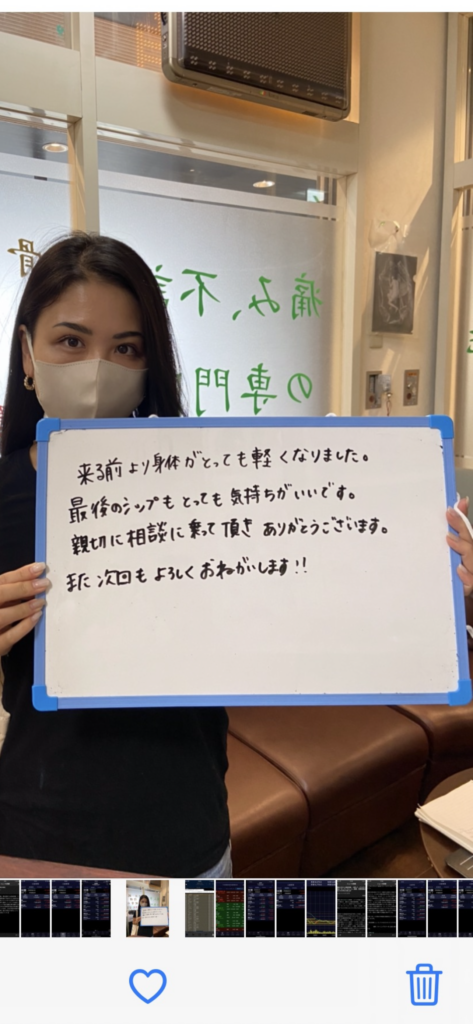 痛み、不
の専門
来る前より身体がとっても軽くなりました。
最後のシップもとっても気持ちがいいです。
親切に相談に乗って頂き ありがとうございます。
また次回もよろしくおねがいします!!